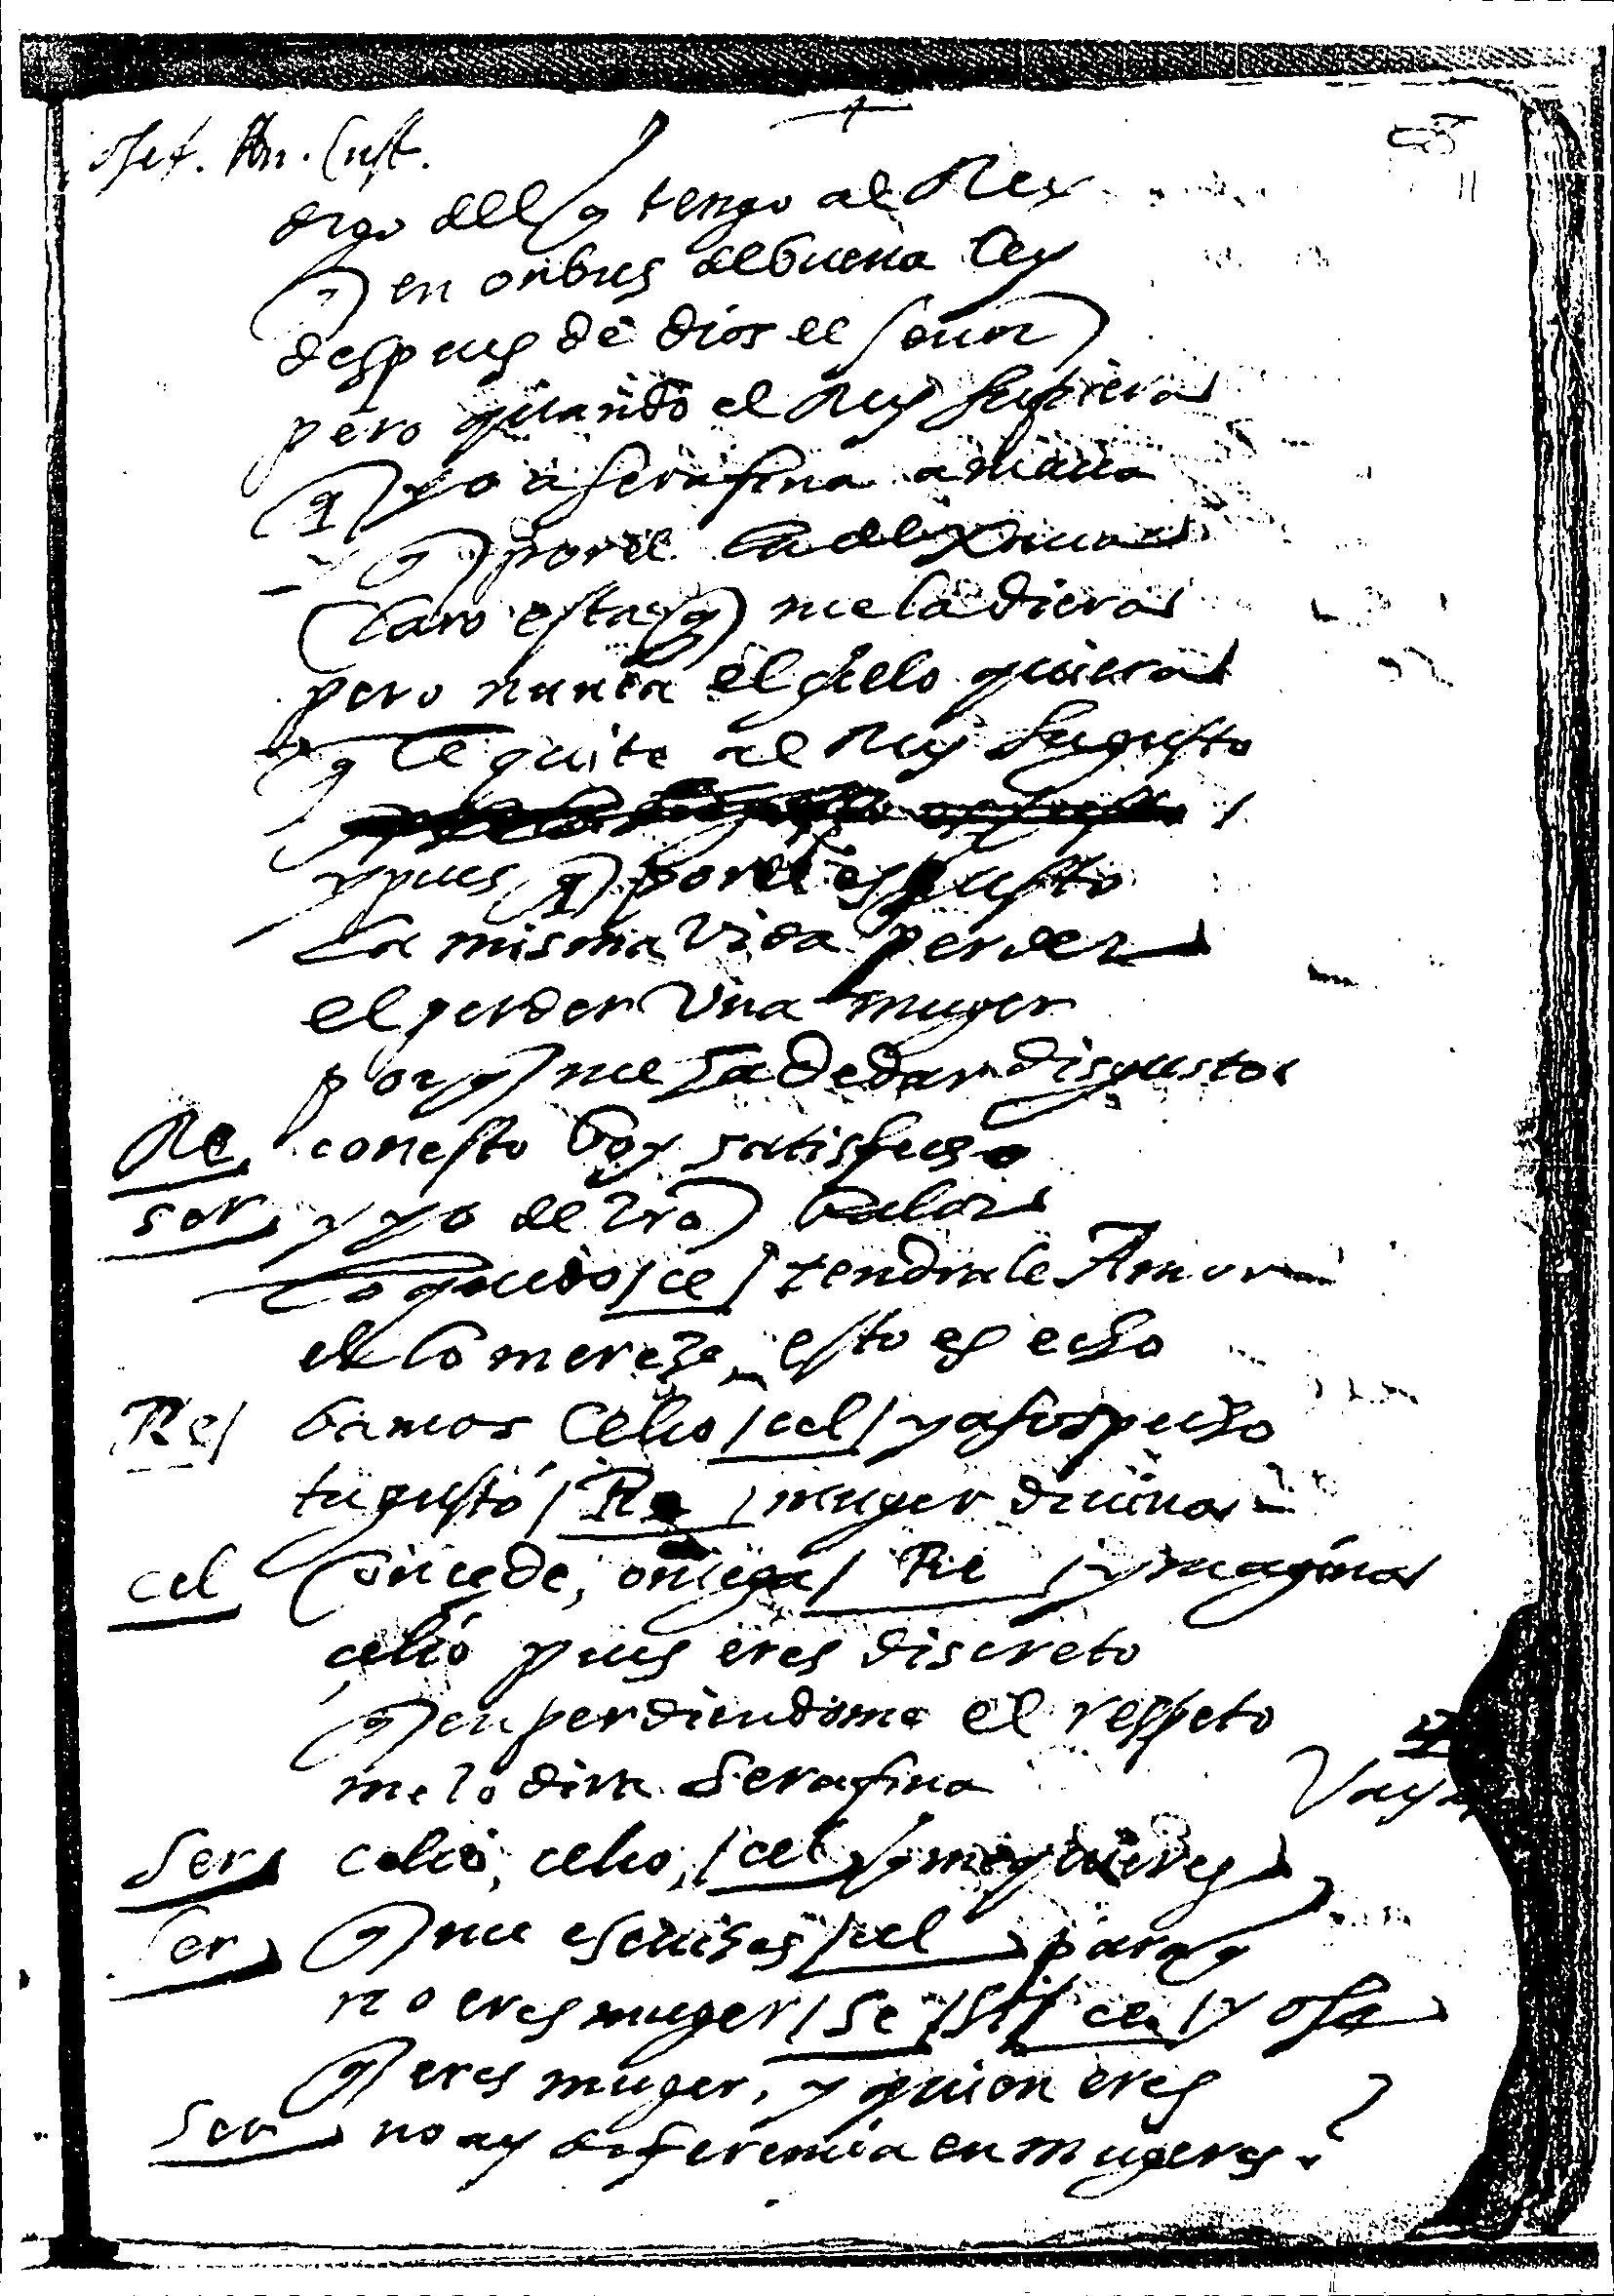 digo del q tengo al Rey
q en onbres de buena ley
despues de dios el señor
pero quando el Rey supiera
q yo a serafina amaua
y q por el la dexaua
claro esta q me la diera
pero nunca el çielo quiera
q le quite al Rey su gusto
y pues q por el es justo
la misma vida perder
el perder vna muger
porq me ha de dar disgusto
Re con esto boy satisfecho
ser y yo de vro balor
lo quedo / ce / tendrale Amor
el lo mereze, esto es echo
Re / bamos Celio / cel / ya sospecho
tu gusto / Re / muger diuina
cel Conçede, o niega / Re / ymagina
çelio pues eres discreto
q en perdiendome el respeto
me lo dira Serafina
Ser celio, celio, / cel / q me quieres
Ser q me escuches / cel paraq
no eres muger / Se / si / ce / y ose
q eres muger, y quien eres
Ser no ay diferençia en mugeres?